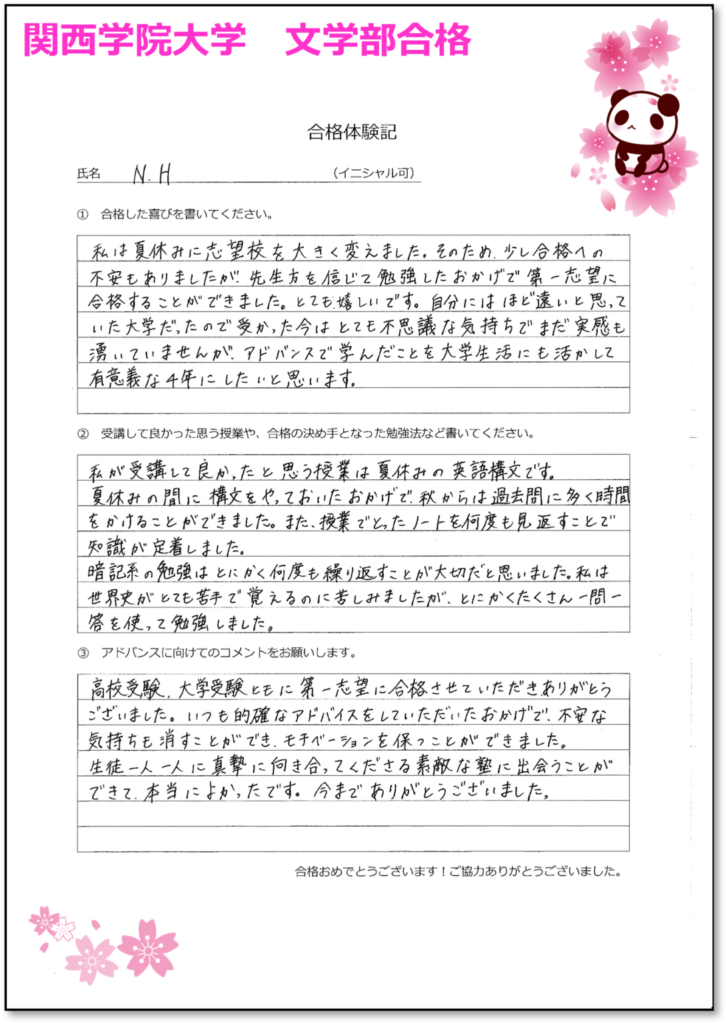 関西学院大学　文学部合格
合格体験記
氏名 N.H （イニシャル可）
① 合格した喜びを書いてください。
私は夏休みに志望校を大きく変えました。そのため、少し合格への
不安もありましたが、先生方を信じて勉強したおかげで第一志望に
合格することができました。とても嬉しいです。自分にはほど遠いと思って
いた大学だったので受かった今はとても不思議な気持ちでまだ実感も
湧いていませんが、アドバンスで学んだことを大学生活にも活かして
有意義な4年にしたいと思います。
② 受講して良かった思う授業や、合格の決め手となった勉強法など書いてください。
私が受講して良かったと思う授業は夏休みの英語構文です。
夏休みの間に構文をやっておいたおかげで、秋からは過去問に多く時間
をかけることができました。また、授業でとったノートを何度も見返すことで
知識が定着しました。
暗記系の勉強はとにかく何度も繰り返すことが大切だと思いました。私は
世界史がとても苦手で覚えるのに苦しみましたが、とにかくたくさん一問一
答を使って勉強しました。
③ アドバンスに向けてのコメントをお願いします。
高校受験、大学受験ともに第一志望に合格させていただきありがとう
ございました。いつも的確なアドバイスをしていただいたおかげで、不安な
気持ちも消すことができ、モチベーションを保つことができました。
生徒一人一人に真摯に向き合ってくださる素敵な塾に出会うことが
できて、本当によかったです。今までありがとうございました。
合格おめでとうございます！ご協力ありがとうございました。